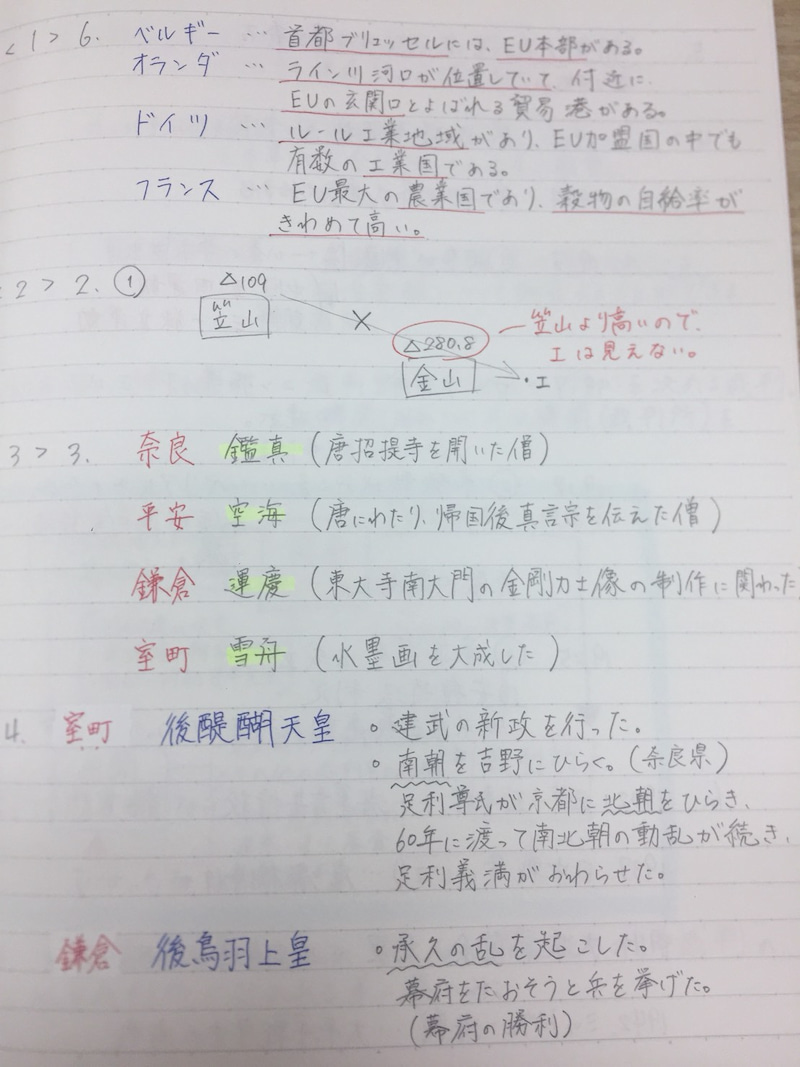 <1> 6. ベルギー … 首都ブリュッセルには、EU本部がある。
オランダ … ライン川河口が位置していて、付近に
EUの玄関口とよばれる貿易港がある。
ドイツ … ルール工業地域があり、EU加盟国の中でも
有数の工業国である。
フランス … EU最大の農業国であり、穀物の自給率が
きわめて高い。
2> 2. ①
△109
笠山
×
△280.8
金山
・エ
笠山より高いので、
エは見えない。
3> 3. 奈良 鑑真 (唐招提寺を開いた僧)
平安 空海 (唐にわたり、帰国後真言宗を伝えた僧)
鎌倉 運慶 (東大寺南大門の金剛力士像の制作に関わった)
室町 雪舟 (水墨画を大成した)
4. 室町 後醍醐天皇 ○ 建武の新政を行った。
○ 南朝を吉野にひらく。(奈良県)
足利尊氏が京都に北朝をひらき、
60年に渡って南北朝の動乱が続き、
足利義満がおわらせた。
鎌倉 後鳥羽上皇 ○ 承久の乱を起こした。
幕府をたおそうと兵を挙げた。
(幕府の勝利)